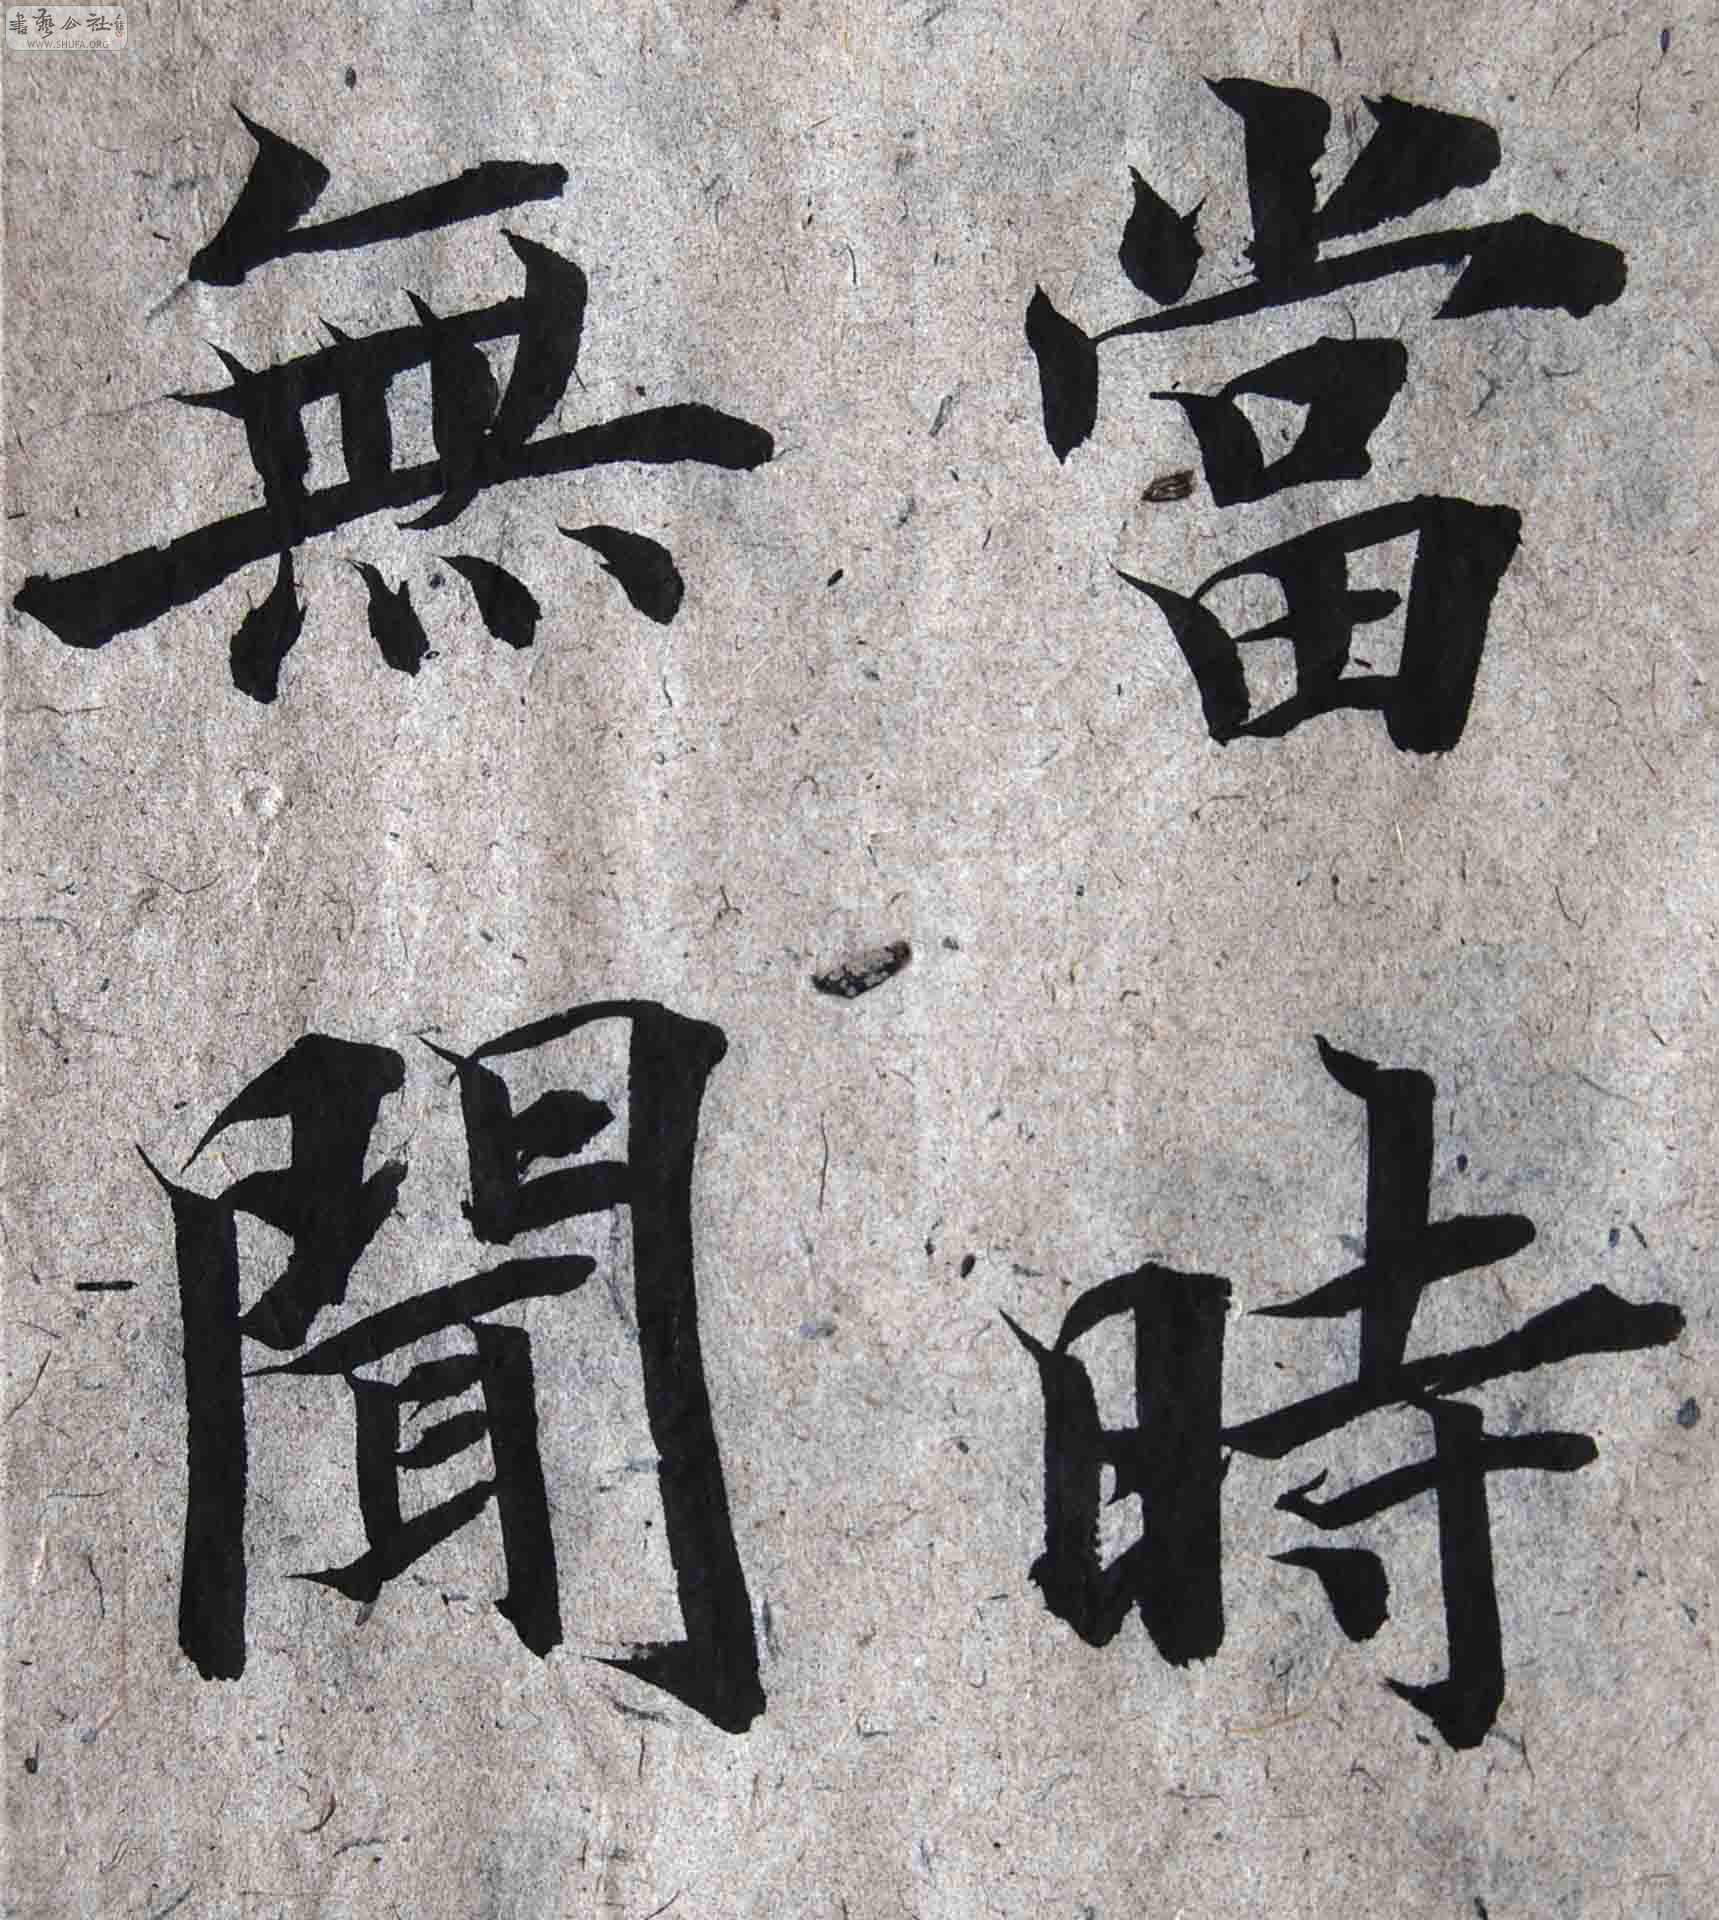 當時
無聞
書藝公社
WWW.SHUFA.ORG